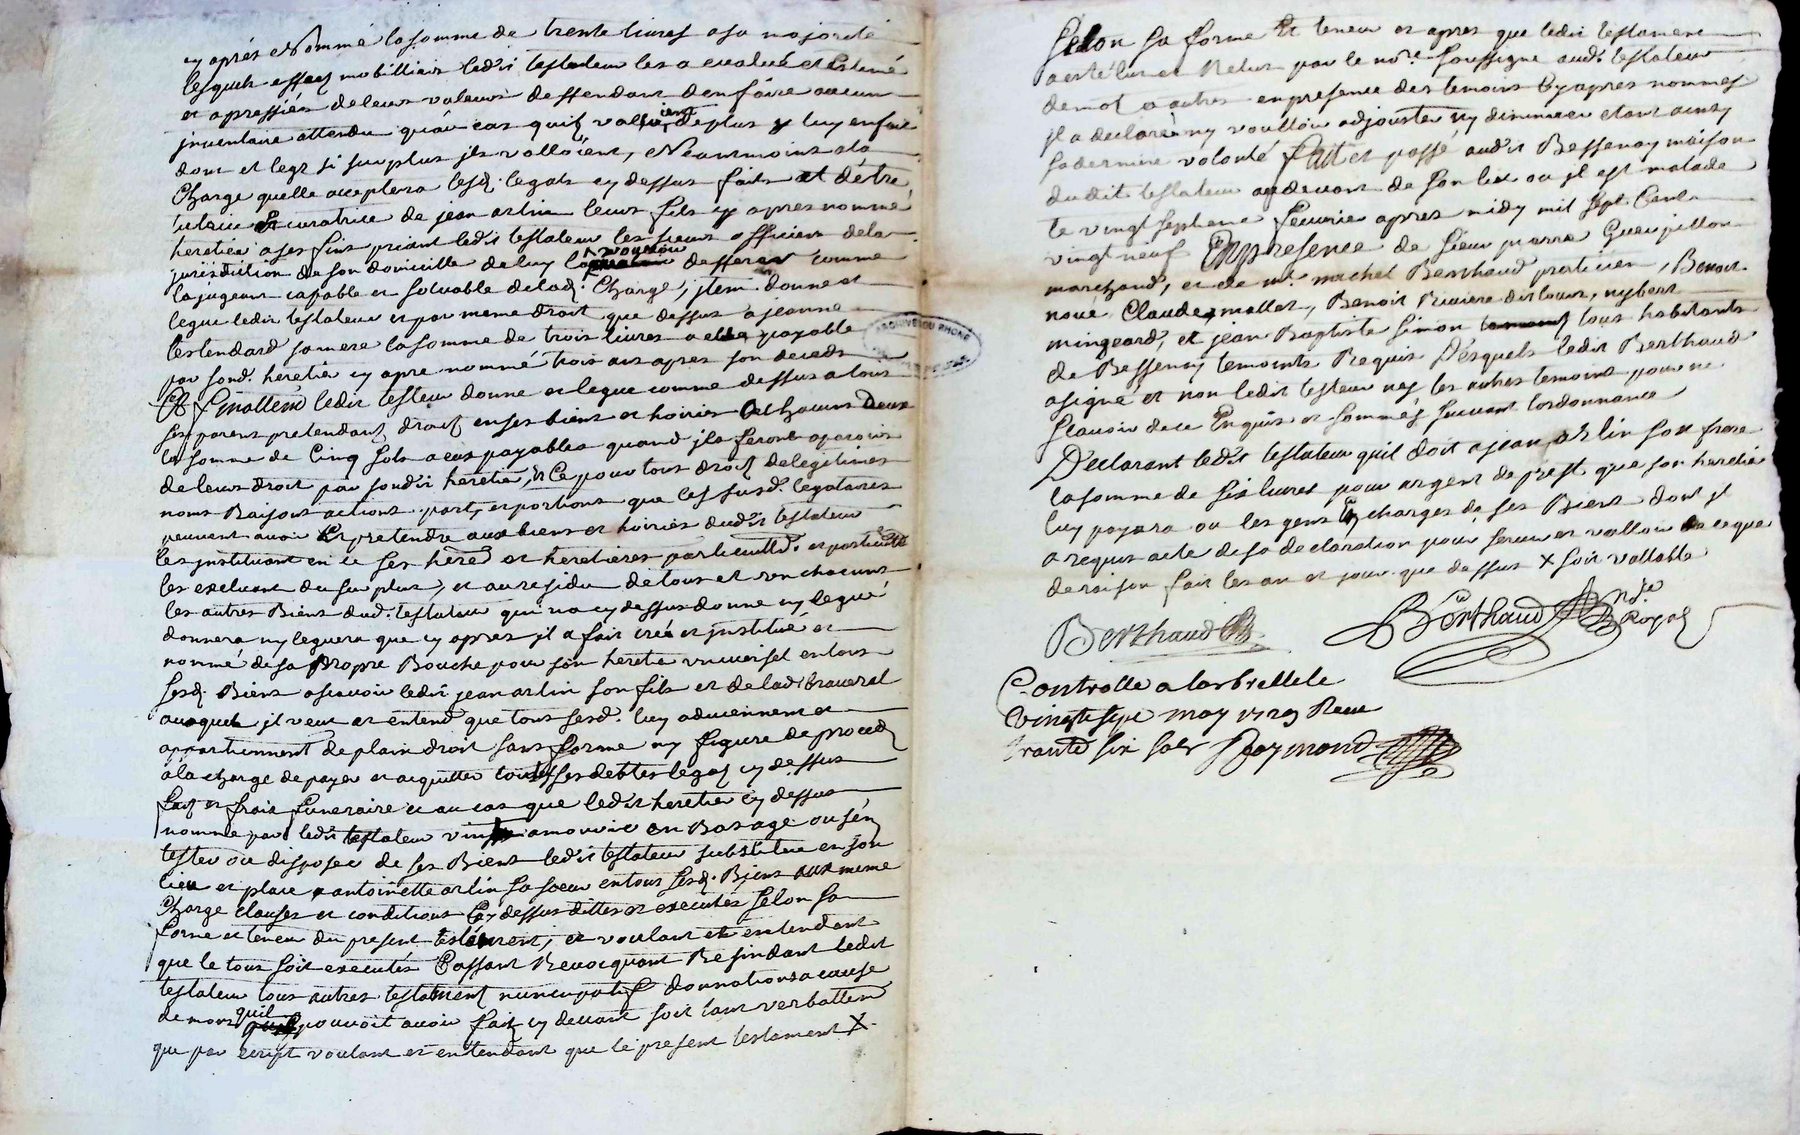 cy aprés Nommé la somme de trente livres a sa majorité
lesquels effaits mobilliairs ledit testateur les a evalué et Estimé
et apressiés de leurs valeurs deffendant den faire aucun
jnventaire attendu quau cas quils vallu ient de plus y luy en fait
don et legt si surplus jls valloient, Neantmoins a la
Charge quelle acceptera lesd. legats cy dessus faits et déstre
tutrice Et curatrice de jean arlin leurs fils cy apres nommé
heretier a ses fins priant ledit testateur les sieurs officiers de la
jurisdiction de son domicille de luy la vouloir defferer comme
la jugeant capable et solvable de lad. Charge, jtem donne et
legue ledit testateur et par meme droit que dessus a jeanne
lestendard sa mere la somme de trois livres a elle payable
par sond. heretier cy apre nommé trois ans apres son deceds
Et finallem ledit testeur donne et legue comme dessus a tous
ses parens pretendants droits en ses biens et hoiries a chacuns Deux
la somme de Cinq sols a eux payables quand jls seront aparoir
de leurs droit par sondit heretier, & Ce pour tous droits de legitimes
noms Raisons actions part, et portions que les susd. legataires
peuvent avoir Et pretendre aux biens et hoiries dudit testateur
les jnstituant en ce ses hered et heretieres particullr. et particulle
les excluant du surplus, et au residu de tous et un chacuns
les autres Biens dud. testateur qui na cy dessus donne ny legué
donnera ny leguera que cy apres jl a fait créé et jnstitué et
nommé de sa propre Bouche pour son heretier vniversel en tous
sesd. Biens ascavoir ledit jean arlin son fils et de lad. traverel
auquel jl veut et entend que tous sesd. luy adviennent et
appartiennent de plain droit sans forme ny figure de proceds
a la charge de payer et acquitter touttes ses debtes legats cy dessus
faits et frais funeraire et au cas que ledit heretier cy dessus
nommé par ledit testateur vint a mourir en Bas age ou sans
tester ou disposer de ses Biens ledit testateur substitue en son
lieu et place antoinette arlin sa soeur en tous sesd. Biens aux meme
Charge clauses et conditions Cy dessus dittes et executés selon sa
forme et teneur du present testament, et voulant et entendant
que le tous soit executés Cassant Revocquant Resindant ledit
testateur tous autres testaments nuncupatifs donnations a cause
de mort quil pouvoit avoir faits cy devant soit tant verballem
que par escript voulant et entendant que le present testament X
selon sa forme Et teneur et apres que ledit testament
a esté lu et Relut par le nore. soussigné audt. testateur
de mot a autres en presence des temoins Cy apres nommés
jl a declaré ny vouloir adjouster ny diminuer etant ainsy
sa derniere volonté fait et passé audit Bessenay maison
dudit testateur au devant de son lit ou jl est malade
le vingt septieme fevrier apres midy mil sept Cent
vingt neuf En presence de sieur pierre Guerpillon
marchand, et de mr. michel Berthaud praticien, Benoit
noué Claude mallet, Benoit Riviere dit
mingeard, et jean Baptiste simon tous habitants
de Bessenay temoints Requis Desquels ledit Berthaud
a signé et non ledit testeur ny les autres temoints pour ne
scavoir de ce Enquis et sommés suivant lordonnance
Declarant ledit testateur quil doit a jean arlin son frere
la somme de six livres pour argent de prest que son heretié
luy payera ou les gens En charges de ses Biens dont jl
a requis acte de sa declaration pour servir et valloir ce que
de raison fait les an et jour que dessus X soit vallable
Berthaud
Berthaud nre
Royal
Controlle a larbrelle le
vingt sept may 1729 Recu
trante six sols Raymond
ARCHIVES DU RHONE